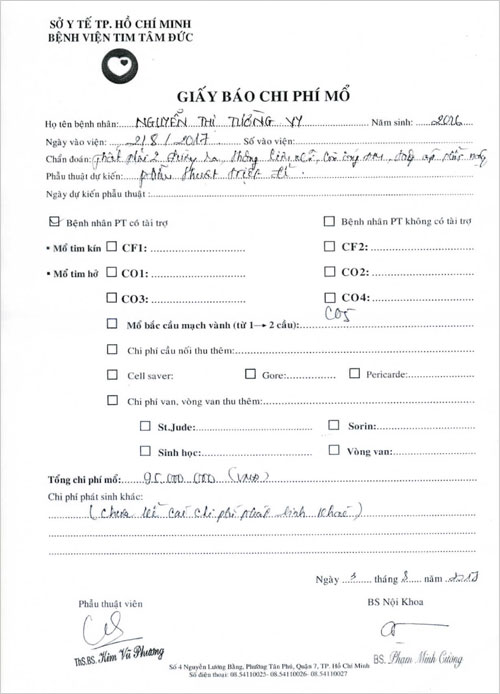 SỞ Y TẾ TP. HỒ CHÍ MINH
BỆNH VIỆN TIM TÂM ĐỨC
GIẤY BÁO CHI PHÍ MỔ
Họ tên bệnh nhân: NGUYỄN THỊ TƯỜNG VY Năm sinh: 2016
Ngày vào viện: 2/8/2017 Số vào viện:
Chẩn đoán: thất phải 2 đường ra, thông liên thất, còn ống
Phẫu thuật dự kiến: phẫu thuật triệt để.
Ngày dự kiến phẫu thuật:
Bệnh nhân PT có tài trợ Bệnh nhân PT không có tài trợ
• Mổ tim kín CF1: CF2:
• Mổ tim hở CO1: CO2:
CO3: CO4:
CO5
Mổ bắc cầu mạch vành (từ 1→ 2 cầu):
Chi phí cầu nối thu thêm:
Cell saver: Gore: Pericarde:
Chi phí van, vòng van thu thêm:
St.Jude: Sorin:
Sinh học: Vòng van:
Tổng chi phí mổ: 95.000.000 (VNĐ)
Chi phí phát sinh khác:
(Chưa kể các chi phí phát sinh khác)
Ngày 3 tháng 8 năm 2017
Phẫu thuật viên BS Nội Khoa
ThS.BS. Kim Vũ Phương BS. Phạm Minh Cường
Số 4 Nguyễn Lương Bằng, Phường Tân Phú, Quận 7, TP. Hồ Chí Minh
Số điện thoại: 08.54110025- 08.54110026- 08.54110027